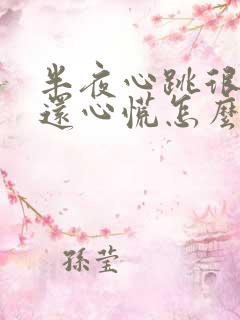 半夜心跳很
還心慌怎麼
孫瑩